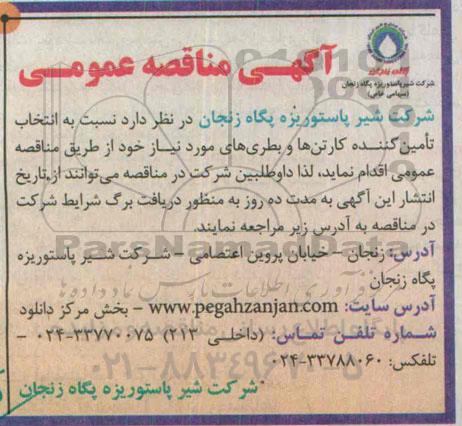 آگهـی مناقصه عمومـی
شرکت شیر پاستوریزه پگاه زنجان
(سهامی خاص)
شرکت شیر پاستوریزه پگاه زنجان در نظر دارد نسبت به انتخاب
تأمین‌کننده کارتن‌ها و بطری‌های مورد نیاز خود از طریق مناقصه
عمومی اقدام نماید، لذا داوطلبین شرکت در مناقصه می‌توانند از تاریخ
انتشار این آگهی به مدت ده روز به منظور دریافت برگ شرایط شرکت
در مناقصه به آدرس زیر مراجعه نمایند.
آدرس: زنجان – خیابان پروین اعتصامی – شرکت شیر پاستوریزه
پگاه زنجان
آدرس سایت: www.pegahzanjan.com – بخش مرکز دانلود
شماره تلفن تماس: (داخلی ۲۱۳) ۳۳۷۷۰۰۷۵-۰۲۴ –
تلفکس: ۳۳۷۸۸۰۶۰-۰۲۴
شرکت شیر پاستوریزه پگاه زنجان
ParsNamadData
۰۲۱-۸۸۳۴۹۶۷۰-۵